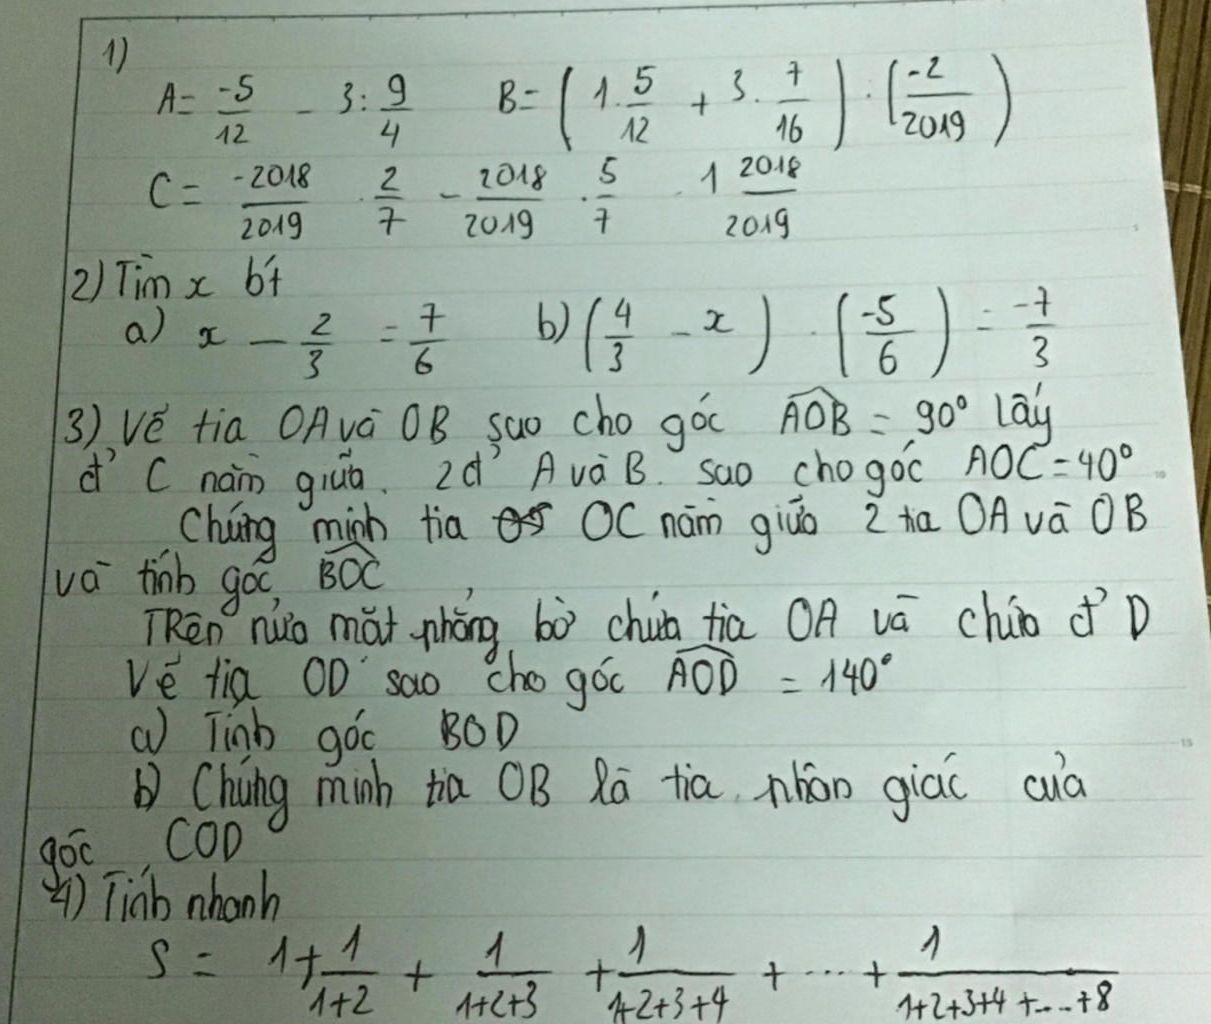 1)
A = \frac{-5}{12} - 3 : \frac{9}{4} B = ( 1 . \frac{5}{12} + 3 . \frac{7}{16} ) . ( \frac{-2}{2019} )
C = \frac{-2018}{2019} . \frac{2}{7} - \frac{2018}{2019} . \frac{5}{7} - 1 \frac{2018}{2019}
2) Tìm x bít
a) x - \frac{2}{3} = \frac{7}{6} b) ( \frac{4}{3} - x ) . ( \frac{-5}{6} ) = \frac{-7}{3}
3) Vẽ tia OA và OB sao cho góc \widehat{AOB} = 90° lấy
đ' C nằm giữa 2 đ' A và B. sao cho góc AOC = 40°
Chứng minh tia OC nằm giữa 2 tia OA và OB
và tính góc \widehat{BOC}
TRên nửa mặt phẳng bờ chứa tia OA và chứa đ' D
Vẽ tia OD sao cho góc \widehat{AOD} = 140°
a) Tính góc BOD
b) Chứng minh tia OB là tia phân giác của
góc COD
4) Tính nhanh
S = 1 + \frac{1}{1+2} + \frac{1}{1+2+3} + \frac{1}{1+2+3+4} + .... + \frac{1}{1+2+3+4+....+8}